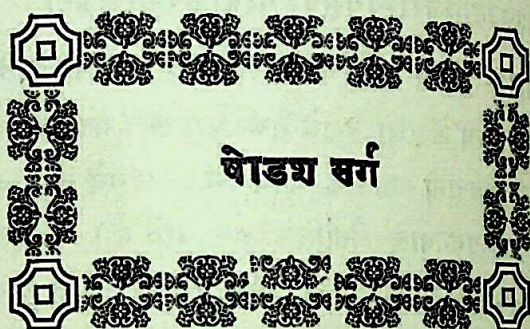 षोडश वर्ग